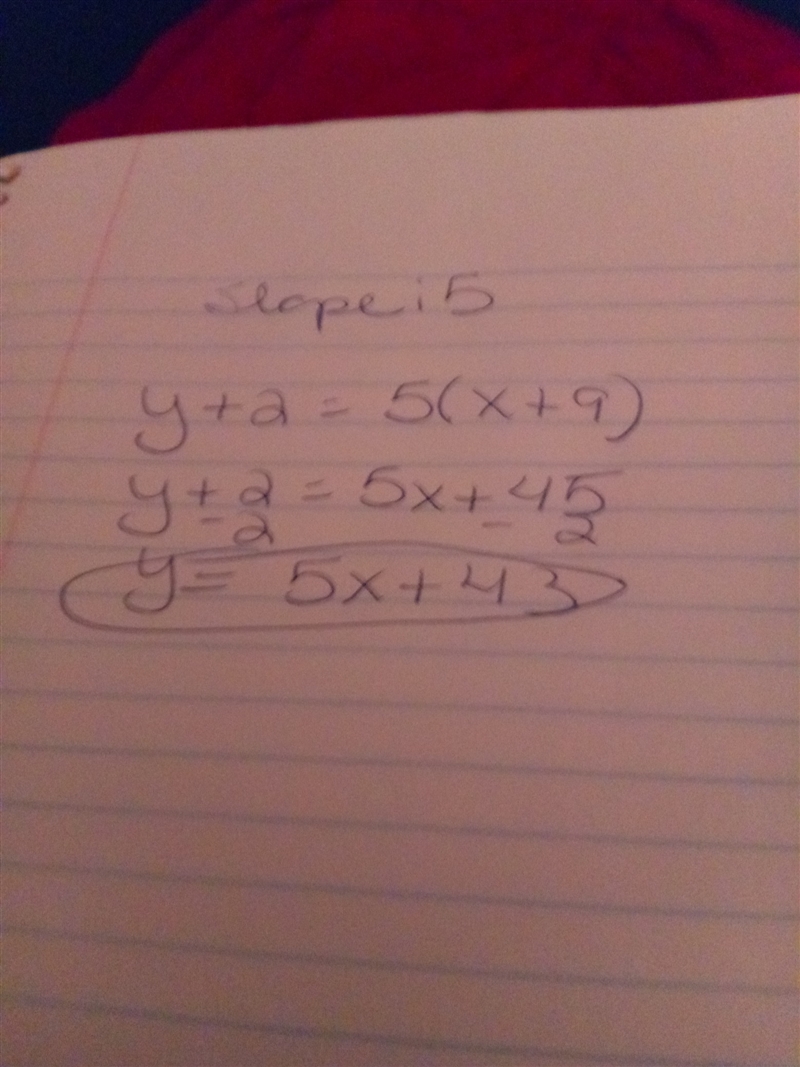 Slope: 5
y + 2 = 5(x + 9)
y + 2 = 5x + 45
- 2 - 2
y = 5x + 43